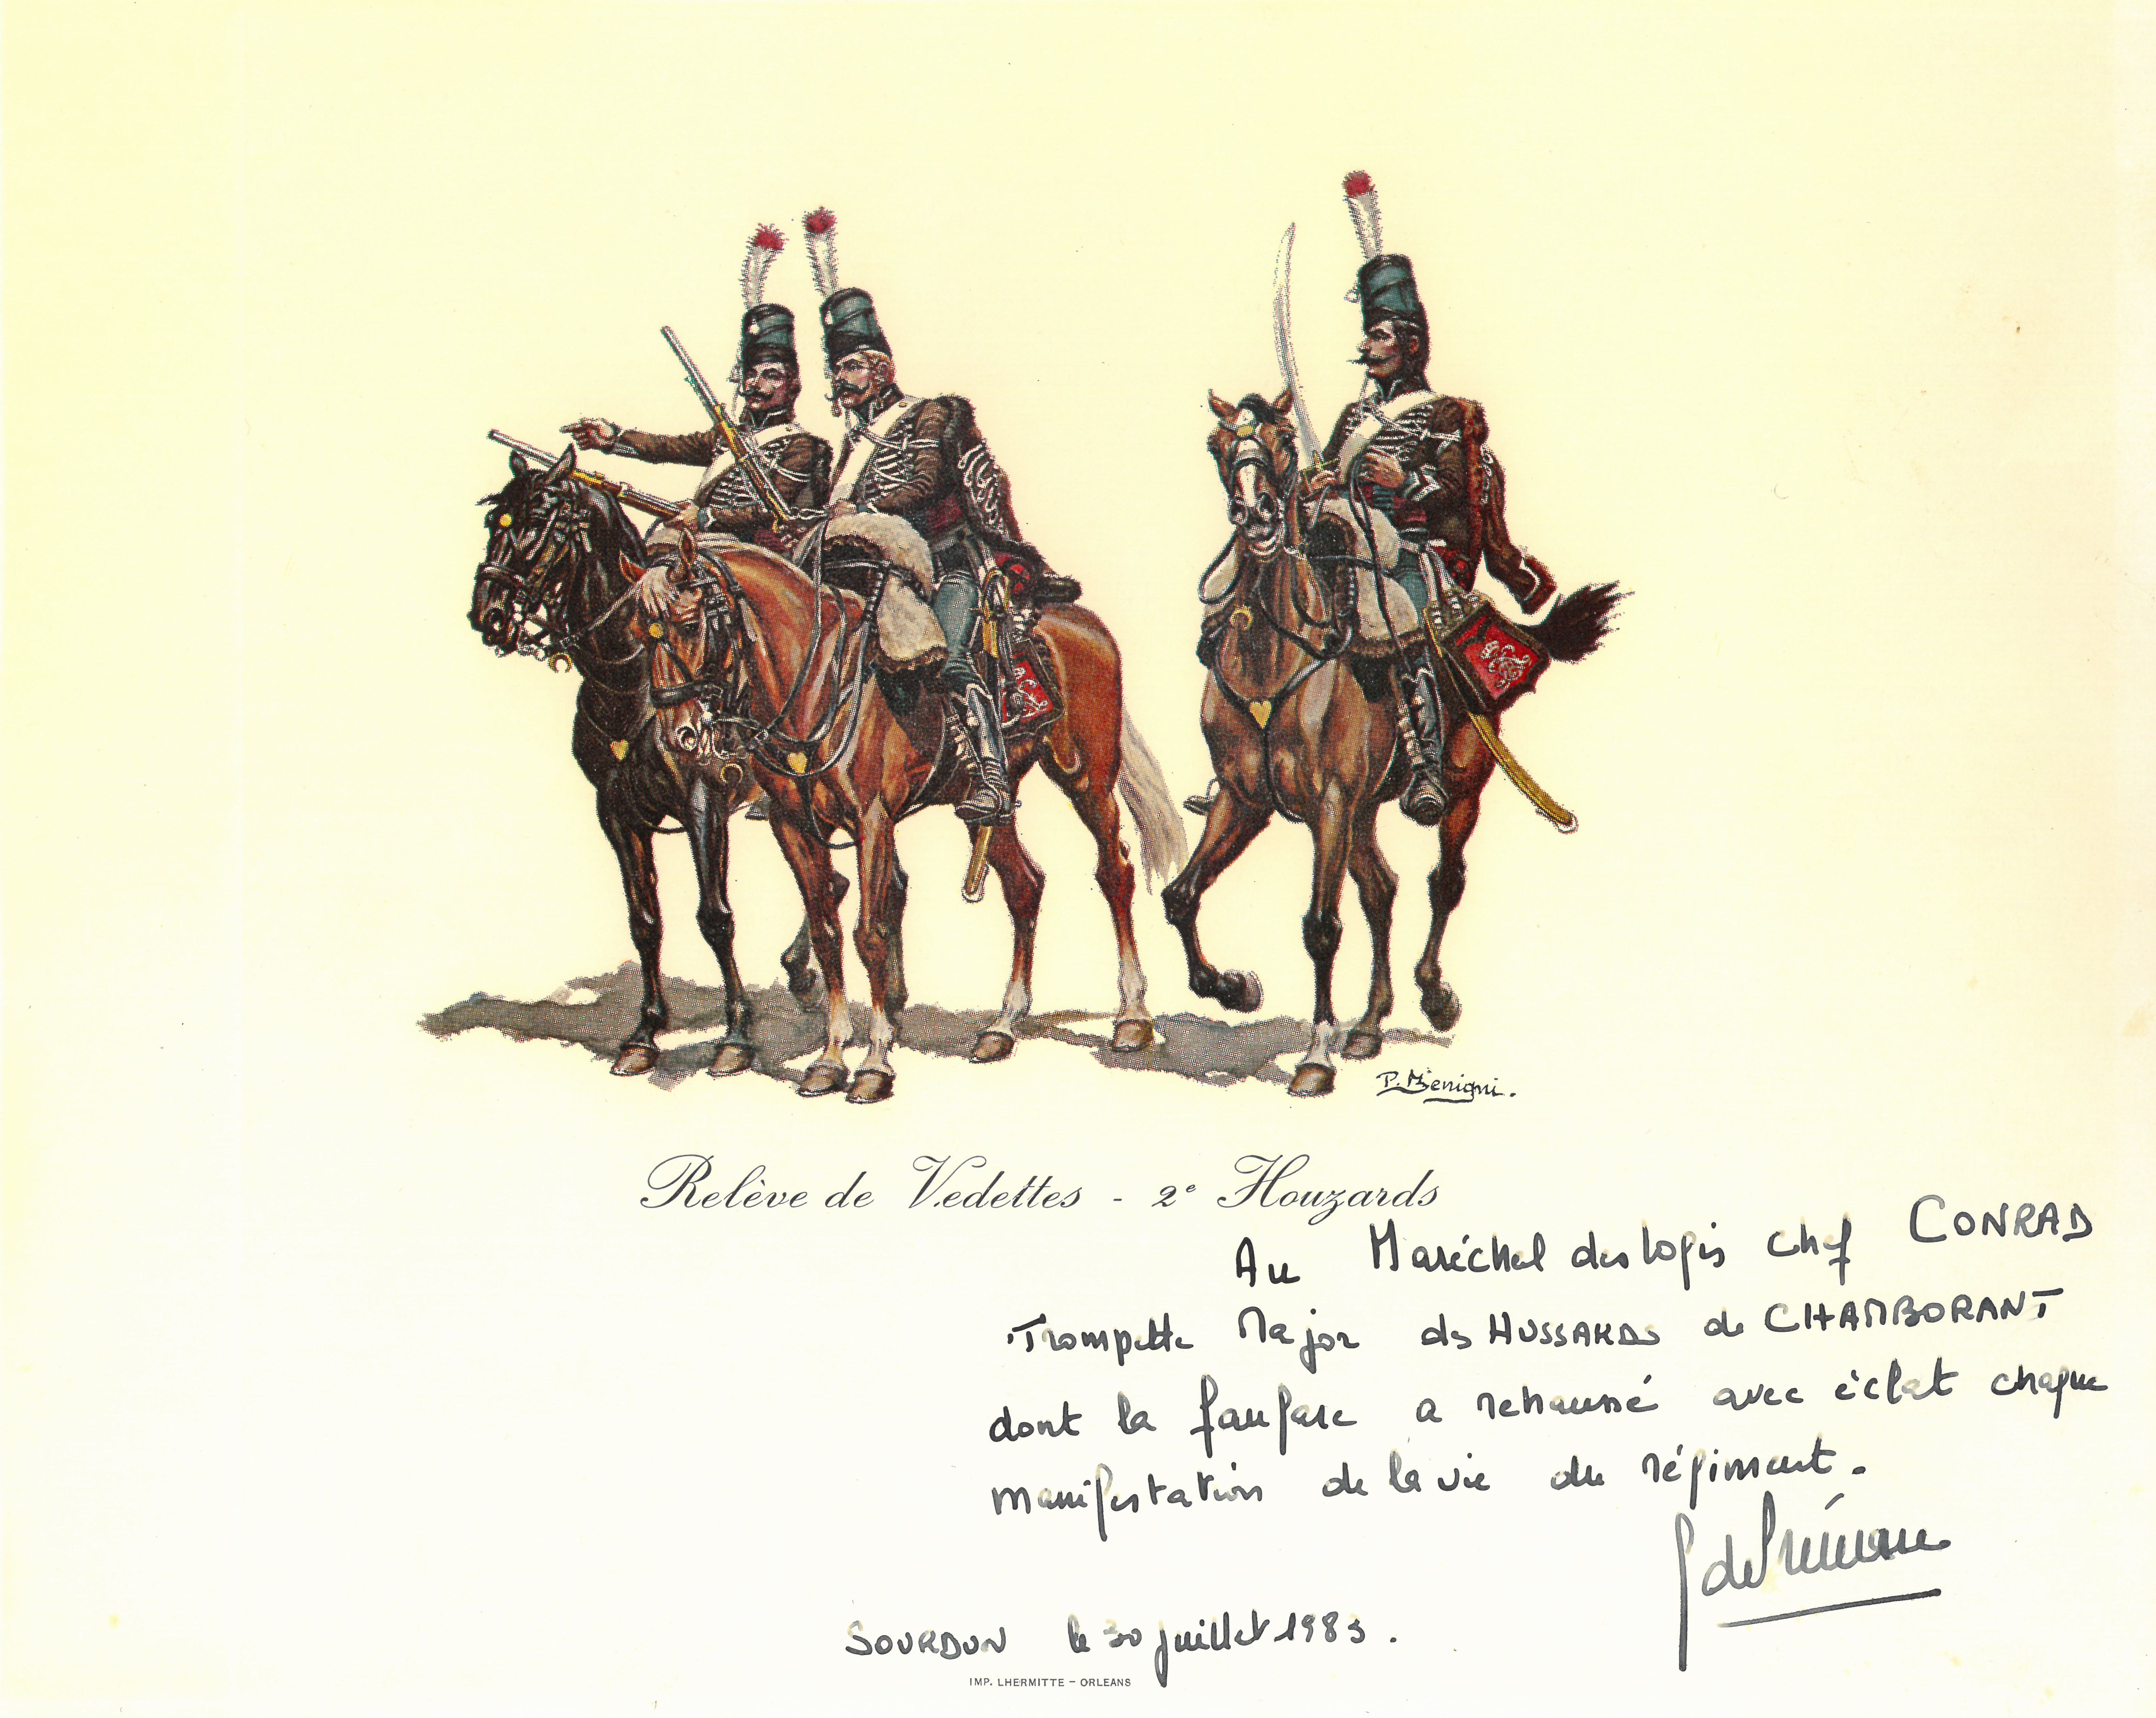 P. Benigni.
Relève de Vedettes - 2e Houzards
Au Maréchal des logis chef CONRAD
Trompette Major des HUSSARDS de CHAMBORANT
dont la fanfare a rehaussé avec éclat chaque
manifestation de la vie du régiment.
SOURDUN le 30 juillet 1983.
IMP. LHERMITTE - ORLEANS